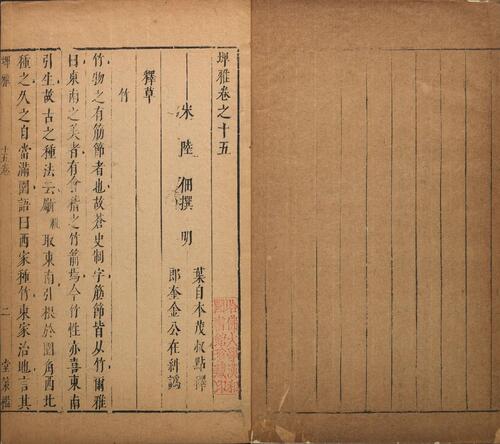 埤雅卷之十五
宋 陸 佃撰 明
葉自本茂叔點釋
郎奎金公在糾譌
釋草
竹
竹物之有筋節者也故蒼史制字筋節皆从竹爾雅
曰東南之美者有會稽之竹箭焉今竹性亦喜東南
引生故古之種法云斸取東南引根於園角西北
種之久之自當滿園語曰西家種竹東家治地言其
埤雅 十五卷 一 堂策檻